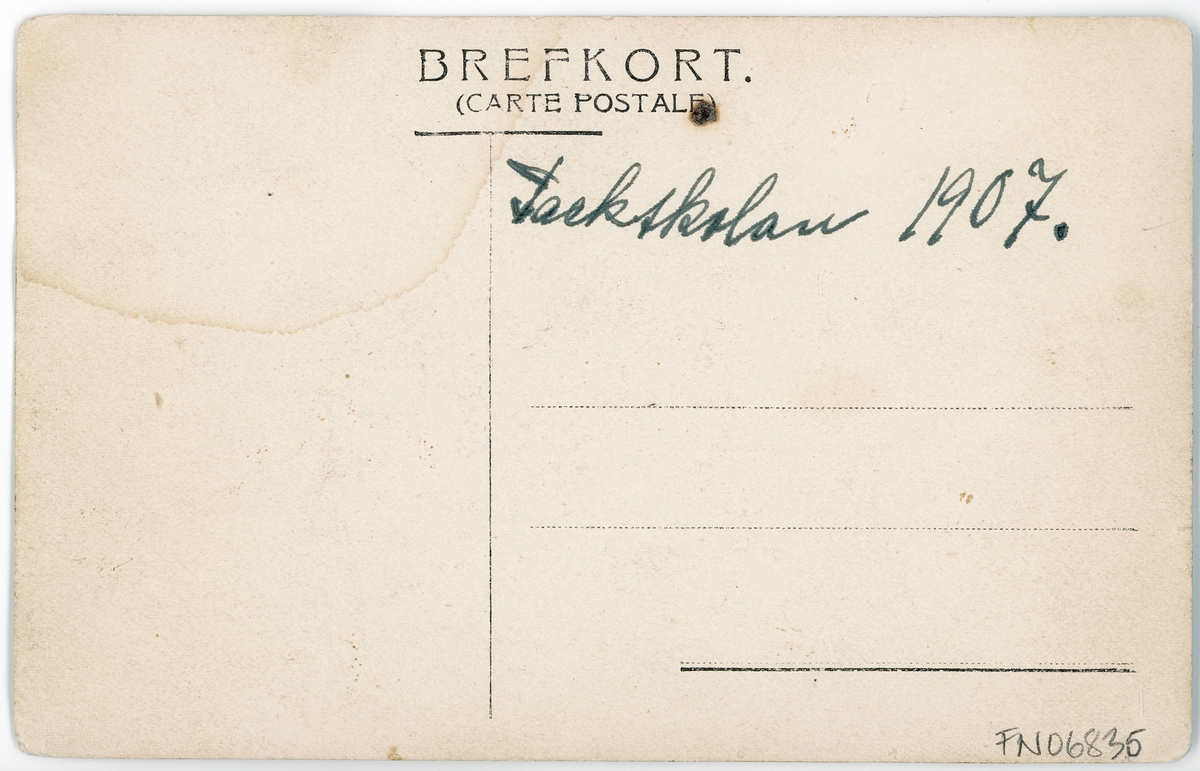 BREFKORT.
(CARTE POSTALE)
Fackskolan 1907.
FN06835